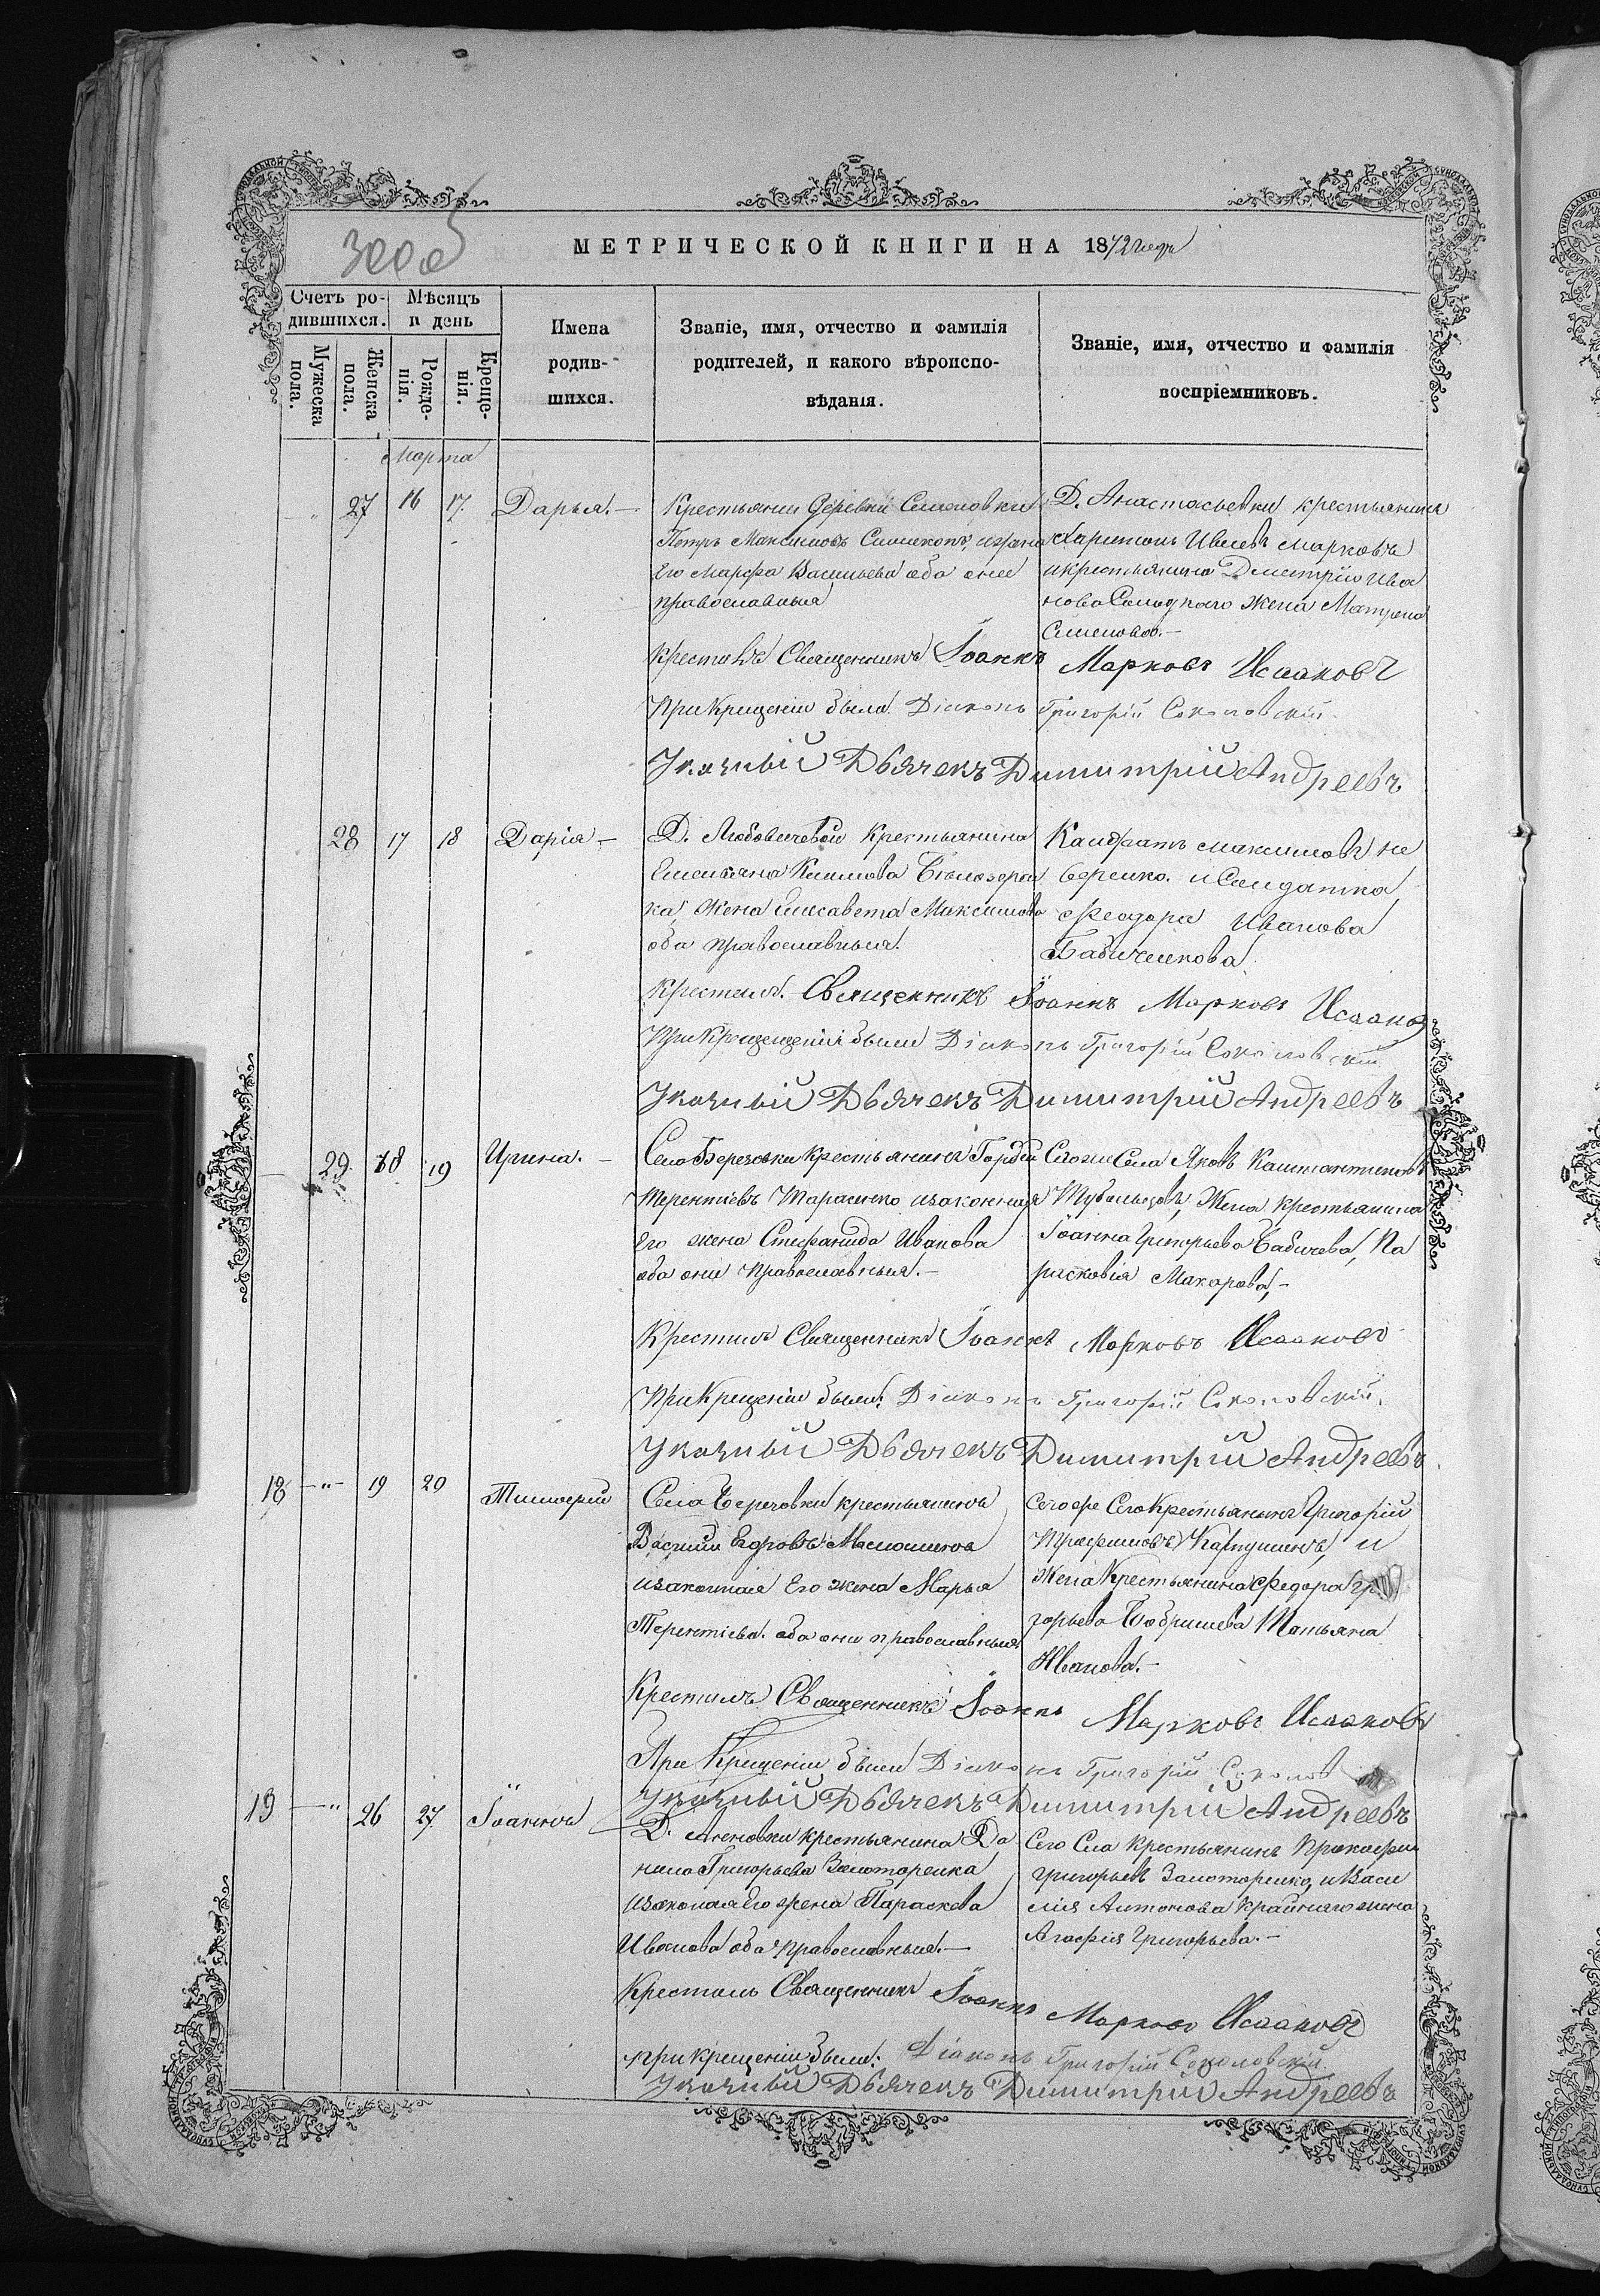 300 об
МЕТРИЧЕСКОЙ КНИГИ НА 1872 годъ
Счетъ родившихся.
Мѣсяцъ и день
Имена родившихся.
Званіе, имя, отчество и фамилія родителей, и какого вѣроисповѣданія.
Званіе, имя, отчество и фамилія воспріемниковъ.
Мужеска пола.
Женска пола.
Рожденія.
Крещенія.
Марта
27 16 17. Дарья.—
Крестьянин деревни
Петръ Максимовъ и жена
Его Марфа Васильева оба оне
православныя
Д. Анастасьевки крестьянинъ
Харитонъ Марковъ
и крестьянина Дмитрія Ива
нова жена Матрена
Семенова.—
Крестилъ Священникъ Іоаннъ Марковъ Исааковъ
При Крещеніи были Діаконъ Григорій Соколовскій
Указный Дьячекъ Димитрій Андреевъ
28 17 18 Дарія—
Д. крестьянина
Емельяна Климова Бѣлозерь
ка, жена Елисавета Максимова
оба православныя.
Максимовъ Не
беренко. и Салдатка
Феодора Иванова
Бабиченкова
Крестилъ. Священникъ Іоаннъ Марковъ Исааковъ
При Крещеніи были Діаконъ Григорій Соколовскій
Указный Дьячекъ Димитрій Андреевъ
29. 18 19 Ирина.—
Села Березовки крестьянинъ Гордей
Терентіевъ Тарасенко и законная
Его жена Стефанида Иванова
оба они православныя.—
Сего же Села Яковъ Канстантиновъ
жена Крестьянина
Іоанна Григорьева Бабичева, Па
расковія Макарова,—
Крестилъ Священникъ Іоаннъ Марковъ Исааковъ
При Крещеніи были: Діаконъ Григорій Соколовскій.
Указный Дьячекъ Димитрій Андреевъ.
18 —"— 19 20 Тимофей
Села Березовки крестьянинъ
Василій Егоровъ
и законная Его жена Марья
Терентіева. оба они православныя
Сего же Села Крестьянинъ Григорій
Трофимовъ и
Жена Крестьянина Федора Гри
горьева Бобришева Татьяна
Иванова.—
Крестилъ Священникъ Іоаннъ Марковъ Исааковъ
При Крещеніи были Діаконъ Григорій Соколов
Указный Дьячекъ Димитрій Андреевъ
19 —" 26 27 Іоаннъ
Д. крестьянина Да
нила Григорьева Золоторенка
и законная Его жена Параскева
Иванова оба православныя.—
Сего Села крестьянинъ Прокофій
Григорьевъ Золоторенко, и Васи
лія Антонова Крайняго жена
Агафія Григорьева.—
Крестилъ Священникъ Іоаннъ Марковъ Исааковъ
При крещеніи были: Діаконъ Григорій Соколовскій
Указный Дьячекъ Димитрій Андреевъ